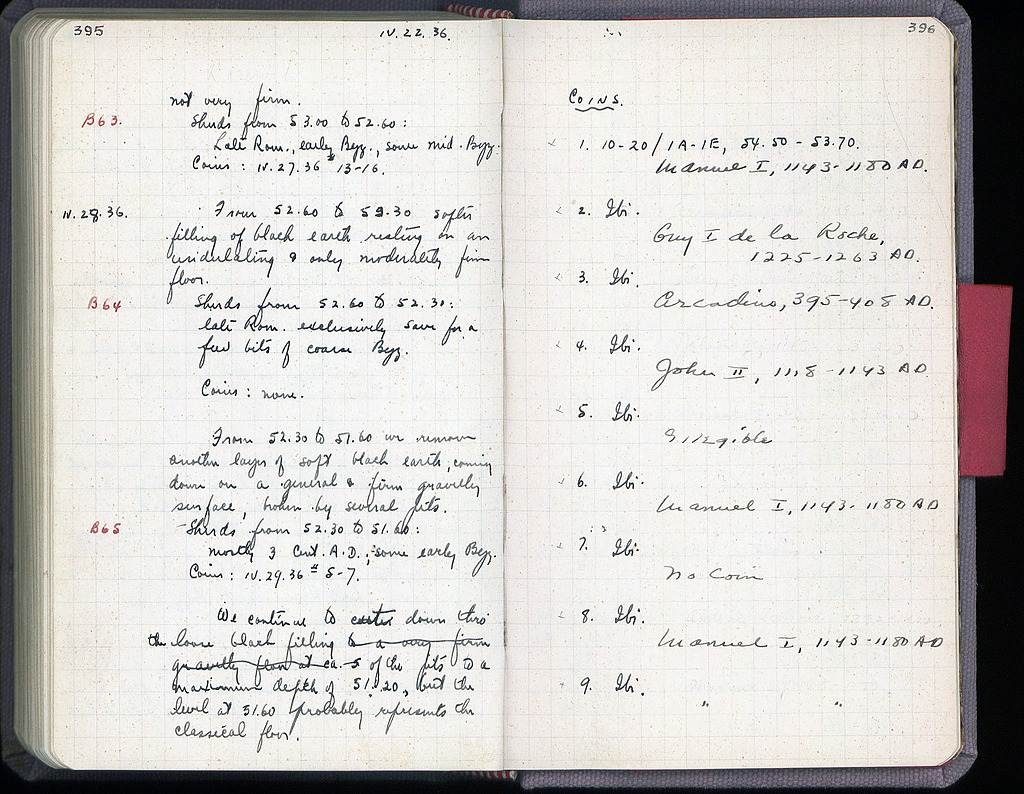 395
IV. 22. 36.
not very firm.
B63.
Sherds from 53.00 to 52.60:
Late Rom., early Byz., some mid. Byz.
Coins: IV.27.36 # 13-16.
IV. 28. 36.
From 52.60 to 52.30 softer
filling of black earth resting on an
undulating & only moderately firm
floor.
B64
Sherds from 52.60 to 52.30:
late Rom. exclusively save for a
few bits of coarse Byz.
Coins: none.
From 52.30 to 51.60 we remove
another layer of soft black earth, coming
down on a general & firm gravelly
surface, broken by several pits.
B65
Sherds from 52.30 to 51.60:
mostly 3 Cent. A.D.; some early Byz.
Coins: IV.29.36 # 5-7.
We continue to down thro'
the loose black filling to a very firm
gravelly floor at ca. 5 of the pits to a
maximum depth of 51.20, but the
level at 51.60 probably represents the
classical floor.
396
COINS.
1. 10-20/1A-1E, 54.50 - 53.70.
Manuel I, 1143-1180 AD.
2. Ibi.
Guy I de la Roche,
1225-1263 AD.
3. Ibi.
Arcadius, 395-408 AD.
4. Ibi.
John II, 1118-1143 AD
5. Ibi.
Illegible
6. Ibi.
Manuel I, 1143-1180 AD
7. Ibi.
No coin
8. Ibi.
Manuel I, 1143-1180 AD
9. Ibi.
" "